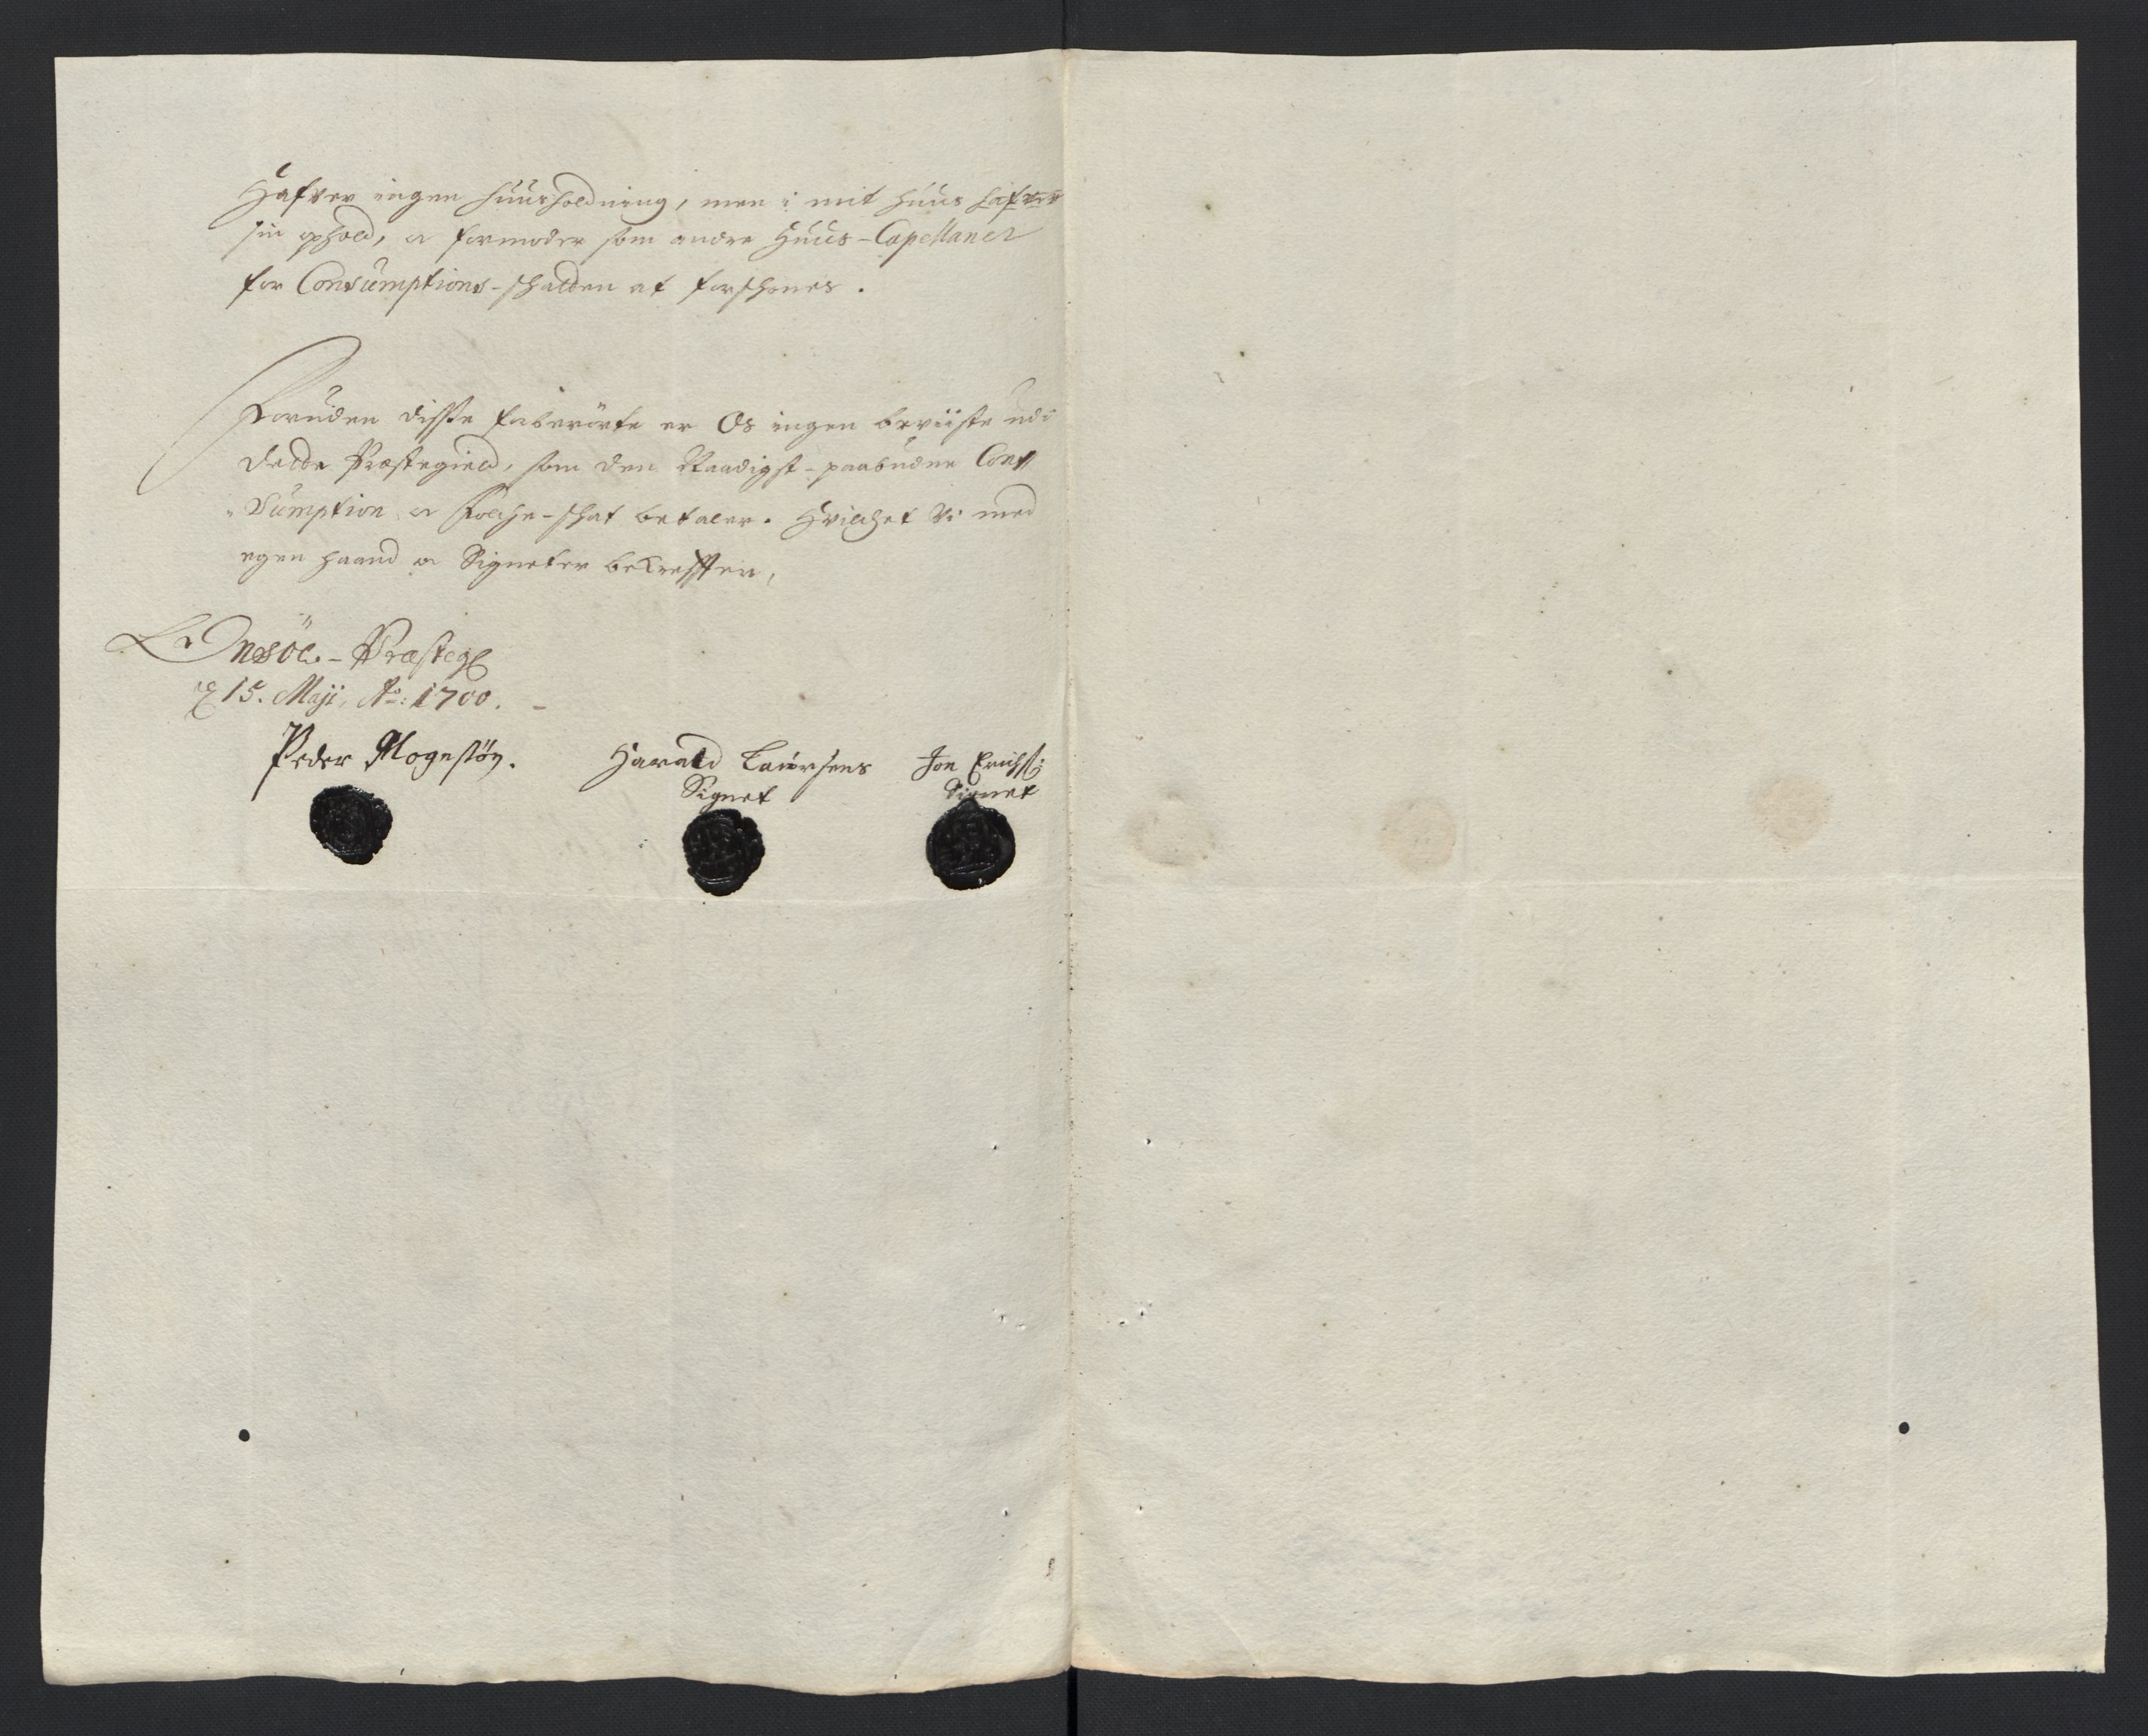 Hafver ingen huusholdning, men i mit huus hafver
sin ophold, oc formoder som andre Huus-Capellaner
for Consumptions-schatten at forschones.
Foruden disse bemte er Os ingen beviiste udi
dette Præstegield, som den Naadigst-paabudne Con
sumption oc Folche-schat betaler. Hvilchet Vi med
egen haand oc Signeter bekrefften,
Onsöe-Præsteg
15. Maji, Ao: 1700.
Peder Mognsøn. Harald Laursens Jon Erichs:
Signet Signet